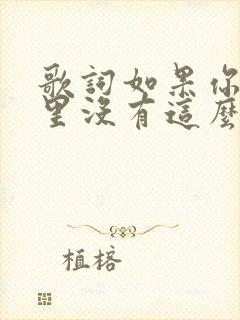 歌詞如果你
里沒有這麼
植榕